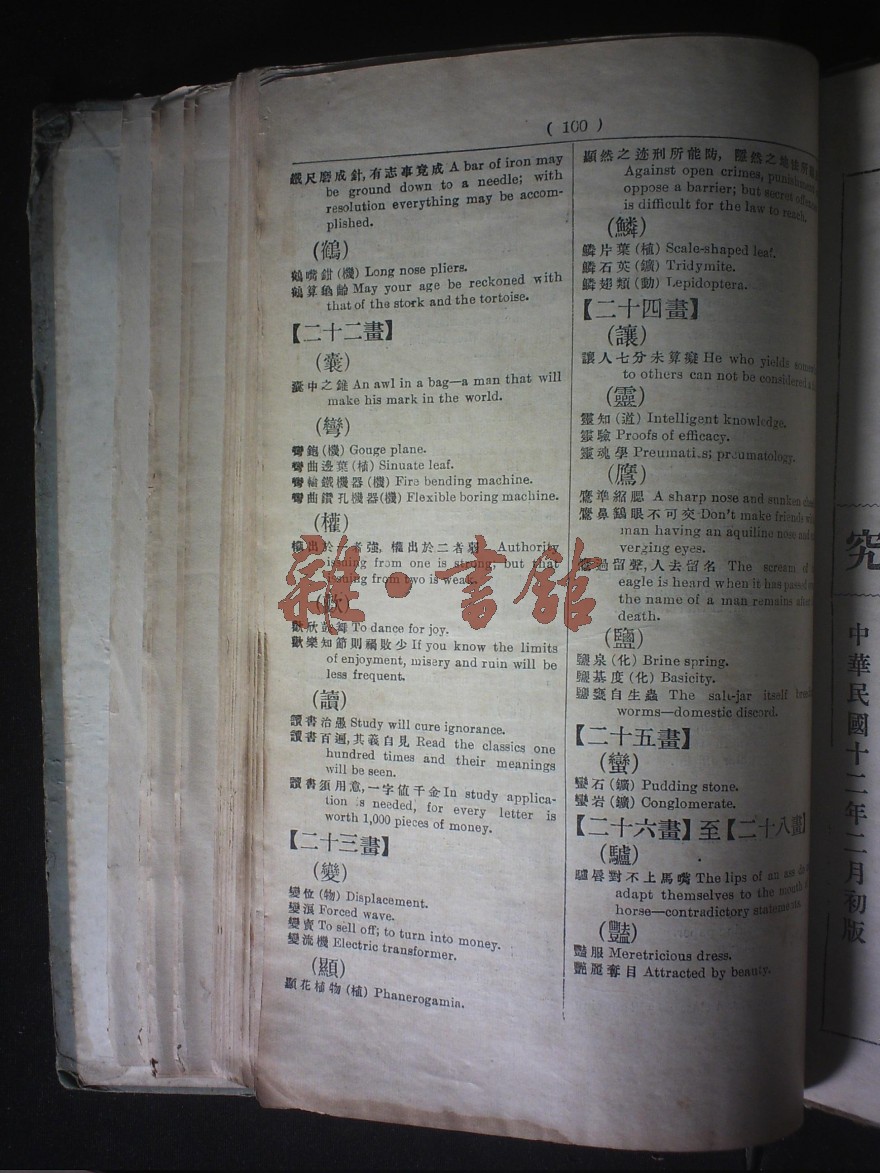 ( 100 )
鐵尺磨成針,有志事竟成 A bar of iron may
be ground down to a needle; with
resolution everything may be accom-
plished.
(鶴)
鶴嘴鉗(機) Long nose pliers.
鶴算龜齡 May your age be reckoned with
that of the stork and the tortoise.
【二十二畫】
(囊)
囊中之錐 An awl in a bag—a man that will
make his mark in the world.
(彎)
彎鉋(機) Gouge plane.
彎曲邊葉(植) Sinuate leaf.
彎輪鐵機器(機) Fire bending machine.
彎曲鑽孔機器(機) Flexible boring machine.
(權)
權出於一者強, 權出於二者弱 Authority
issuing from one is strong; but that
issuing from two is weak.
(歡)
歡欣鼓舞 To dance for joy.
歡樂知節則禍敗少 If you know the limits
of enjoyment, misery and ruin will be
less frequent.
(讀)
讀書治愚 Study will cure ignorance.
讀書百遍,其義自見 Read the classics one
hundred times and their meanings
will be seen.
讀書須用意,一字値千金 In study applica-
tion is needed, for every letter is
worth 1,000 pieces of money.
【二十三畫】
(變)
變位(物) Displacement.
變浪 Forced wave.
變賣 To sell off; to turn into money.
變流機 Electric transformer.
(顯)
顯花植物(植) Phanerogamia.
顯然之迹刑所能防, 隱然之
Against open crimes, punishment
oppose a barrier; but secret
is difficult for the law to reach.
(鱗)
鱗片葉(植) Scale-shaped leaf.
鱗石英(鑛) Tridymite.
鱗翅類(動) Lepidoptera.
【二十四畫】
(讓)
讓人七分未算癡 He who yields
to others can not be considered
(靈)
靈知(道) Intelligent knowledge.
靈驗 Proofs of efficacy.
靈魂學 Pneumatics; pneumatology.
(鷹)
鷹準縮腮 A sharp nose and sunken
鷹鼻鷂眼不可交 Don't make friends
man having an aquiline nose and
verging eyes.
鷹過留聲,人去留名 The scream of
eagle is heard when it has passed
the name of a man remains after
death.
(鹽)
鹽泉(化) Brine spring.
鹽基度(化) Basicity.
鹽甕自生蟲 The salt-jar itself
worms—domestic discord.
【二十五畫】
(蠻)
蠻石(鑛) Pudding stone.
蠻岩(鑛) Conglomerate.
【二十六畫】至【二十八畫】
(驢)
驢唇對不上馬嘴 The lips of an ass
adapt themselves to the mouth
horse—contradictory statements.
(豔)
豔服 Meretricious dress.
艷麗奪目 Attracted by beauty.
究
中華民國十二年二月初版
雜·書舘